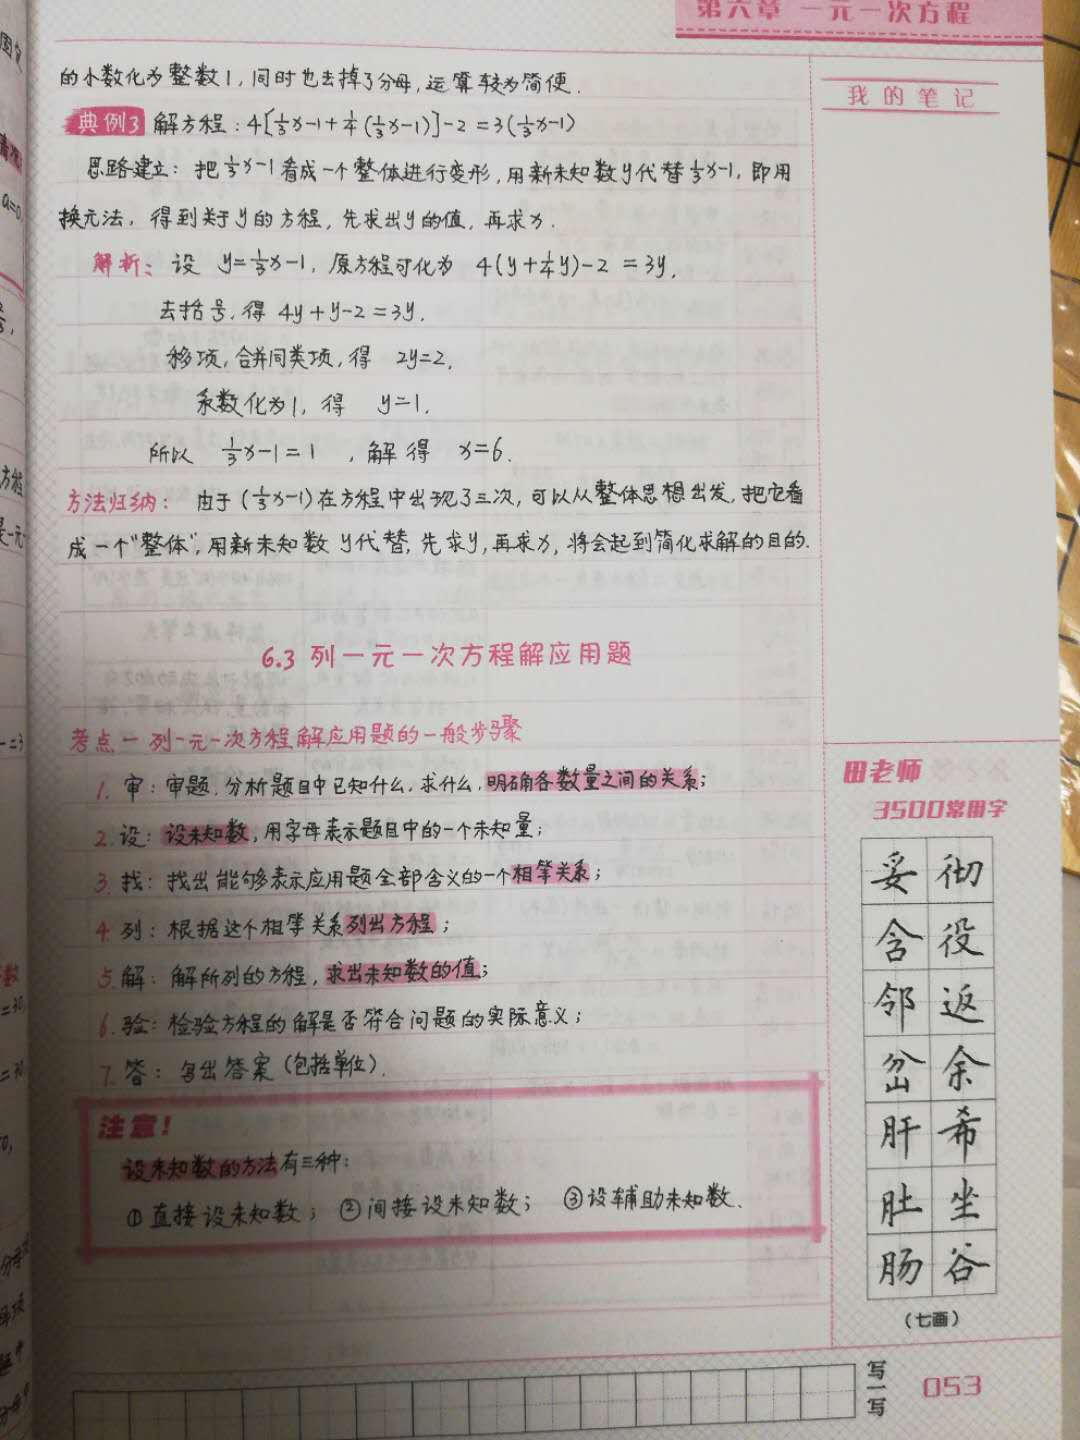 第六章 一元一次方程
的小数化为整数1,同时也去掉了分母,运算较为简便.
典例3 解方程:4[⅓x-1+¼(⅓x-1)]-2=3(⅓x-1)
思路建立:把⅓x-1看成一个整体进行变形,用新未知数y代替⅓x-1,即用
换元法,得到关于y的方程,先求出y的值,再求x.
解析:设 y=⅓x-1,原方程可化为 4(y+¼y)-2=3y,
去括号,得 4y+y-2=3y.
移项,合并同类项,得 2y=2,
系数化为1,得 y=1,
所以 ⅓x-1=1 ,解得 x=6.
方法归纳:由于(⅓x-1)在方程中出现了三次,可以从整体思想出发,把它看
成一个"整体",用新未知数y代替,先求y,再求x,将会起到简化求解的目的.
6.3 列一元一次方程解应用题
考点一 列一元一次方程解应用题的一般步骤
1. 审:审题,分析题目中已知什么,求什么,明确各数量之间的关系;
2. 设:设未知数,用字母表示题目中的一个未知量;
3. 找:找出能够表示应用题全部含义的一个相等关系;
4. 列:根据这个相等关系列出方程;
5. 解:解所列的方程,求出未知数的值;
6. 验:检验方程的解是否符合问题的实际意义;
7. 答:写出答案(包括单位).
注意!
设未知数的方法有三种:
①直接设未知数; ②间接设未知数; ③设辅助未知数.
我的笔记
田老师
3500常用字
妥 彻
含 役
邻 返
岔 余
肝 希
肚 坐
肠 谷
(七画)
写一写
053